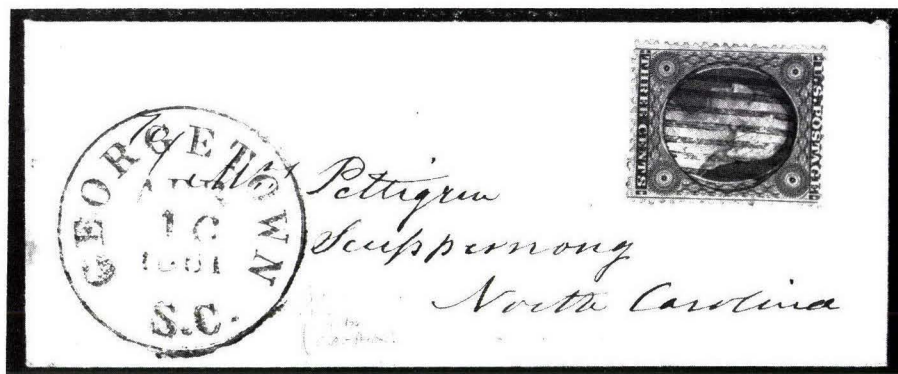 U.S. POSTAGE
THREE CENTS
GEORGETOWN
16
1861
S.C.
Pettigrew
Scuppernong
North Carolina